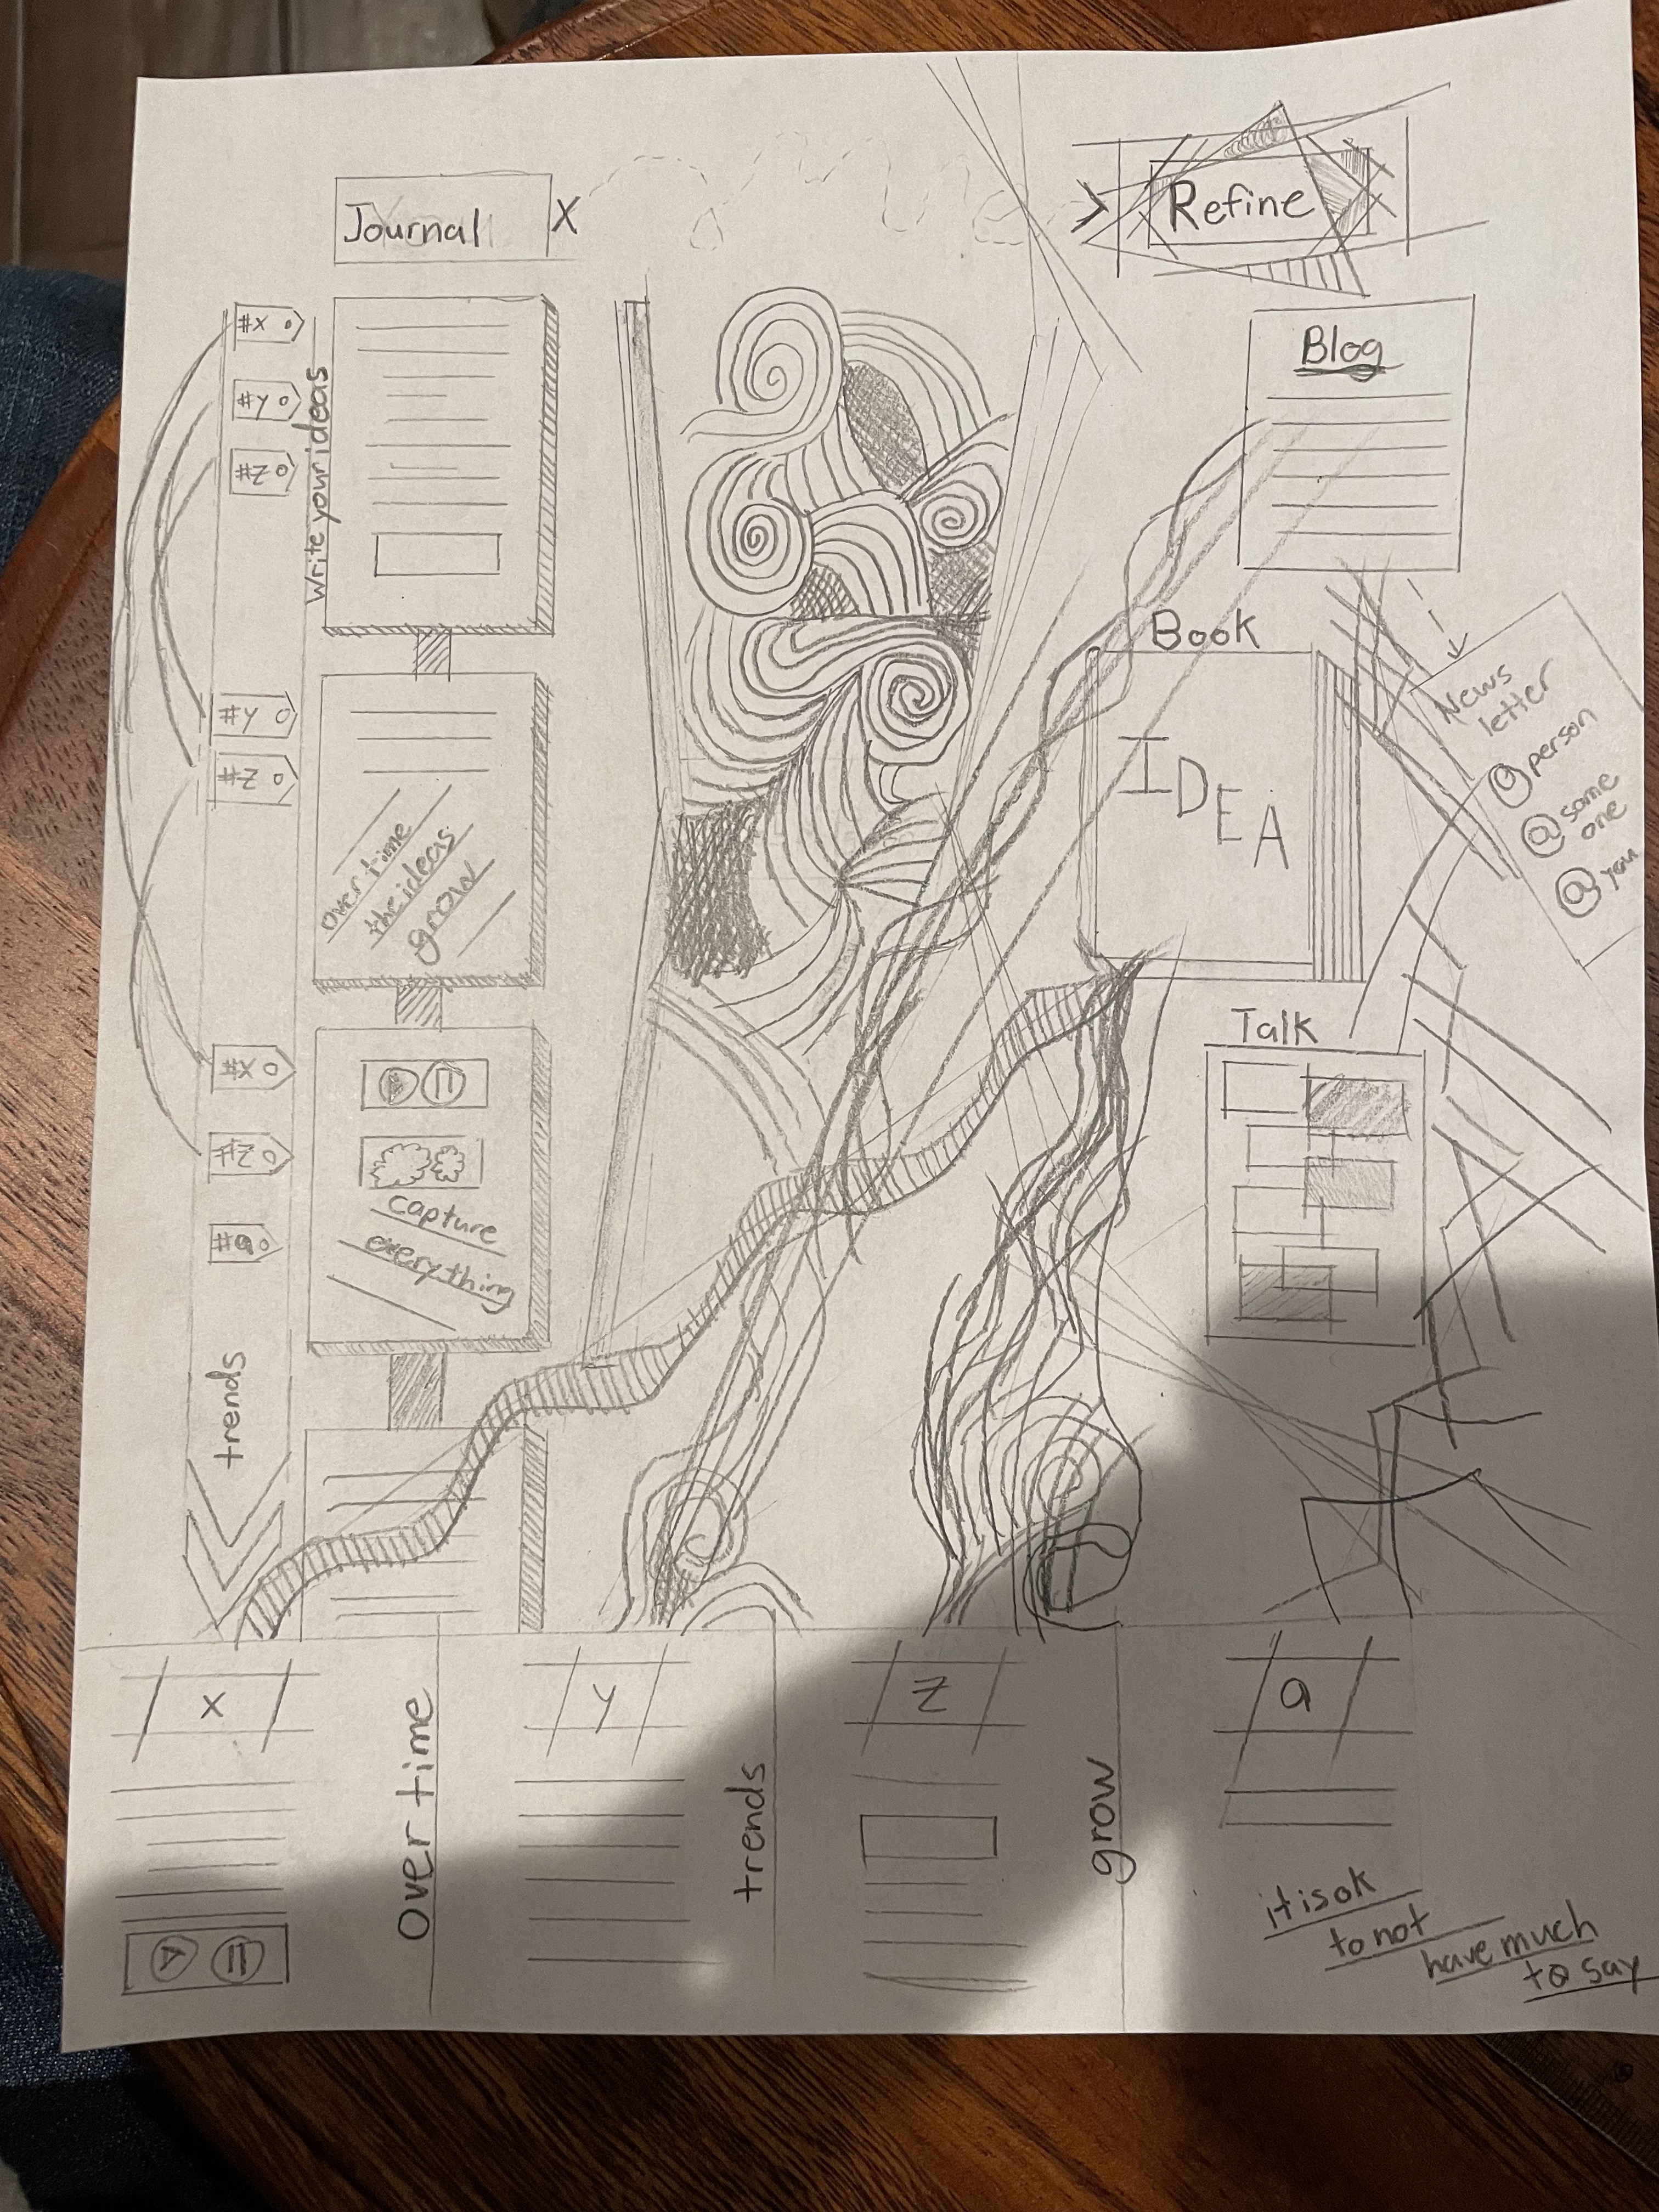 Journal
X
>
Refine
#x
#y
#z
write your ideas
Blog
Book
IDEA
News
letter
@person
@some
one
@you
#y
#z
over time
the ideas
grow
#x
#z
#a
capture
everything
Talk
trends
x
over time
y
trends
z
grow
a
it is ok
to not
have much
to say